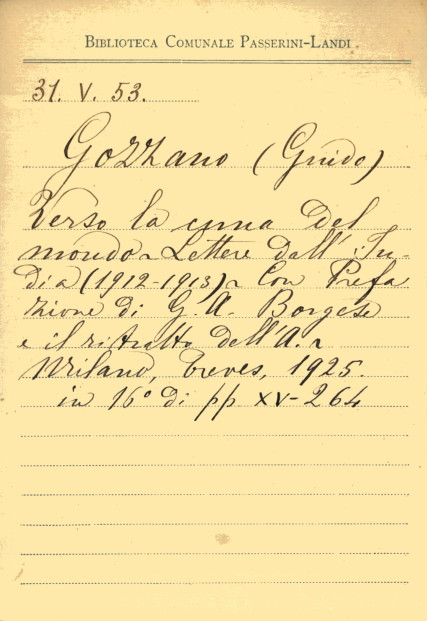 BIBLIOTECA COMUNALE PASSERINI-LANDI
31. V. 53.
Gozzano (Guido)
Verso la cuna del
mondo ~ Lettere dall' In-
dia (1912-1913) ~ Con Prefa
zione di G. A. Borgese
e il ritratto dell'A. ~
Milano, Treves, 1925.
in 16° di pp XV-264